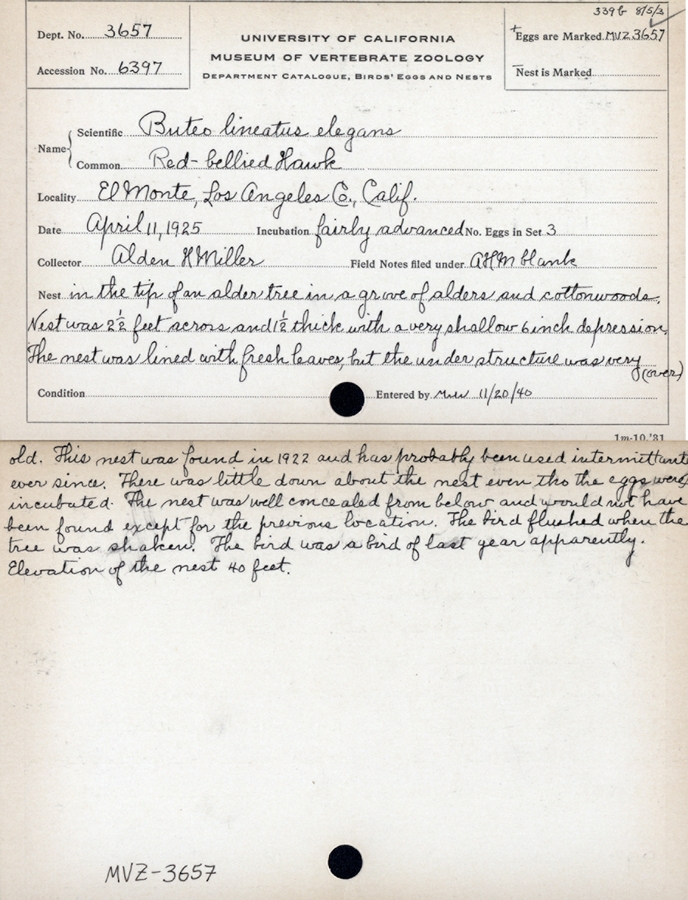 339 b 8/5/3
Dept. No. 3657
UNIVERSITY OF CALIFORNIA
+Eggs are Marked MVZ 3657
MUSEUM OF VERTEBRATE ZOOLOGY
Accession No. 6397
DEPARTMENT CATALOGUE, BIRDS' EGGS AND NESTS
Nest is Marked
Name Scientific Buteo lineatus elegans
Common Red-bellied Hawk
Locality El Monte, Los Angeles Co., Calif.
Date April 11, 1925 Incubation fairly advanced No. Eggs in Set 3
Collector Alden H Miller Field Notes filed under AHM blank
Nest in the tip of an alder tree in a grove of alders and cottonwoods.
Nest was 2½ feet across and 1½ thick with a very shallow 6 inch depression.
The nest was lined with fresh leaves, but the under structure was very
(over)
Condition Entered by 11/20/40
1m-10,'31
old. This nest was found in 1922 and has probably been used intermittant
ever since. There was little down about the nest even tho the eggs were
incubated. The nest was well concealed from below and would not have
been found except for the previous location. The bird flushed when the
tree was shaken. The bird was a bird of last year apparently.
Elevation of the nest 40 feet.
MVZ-3657